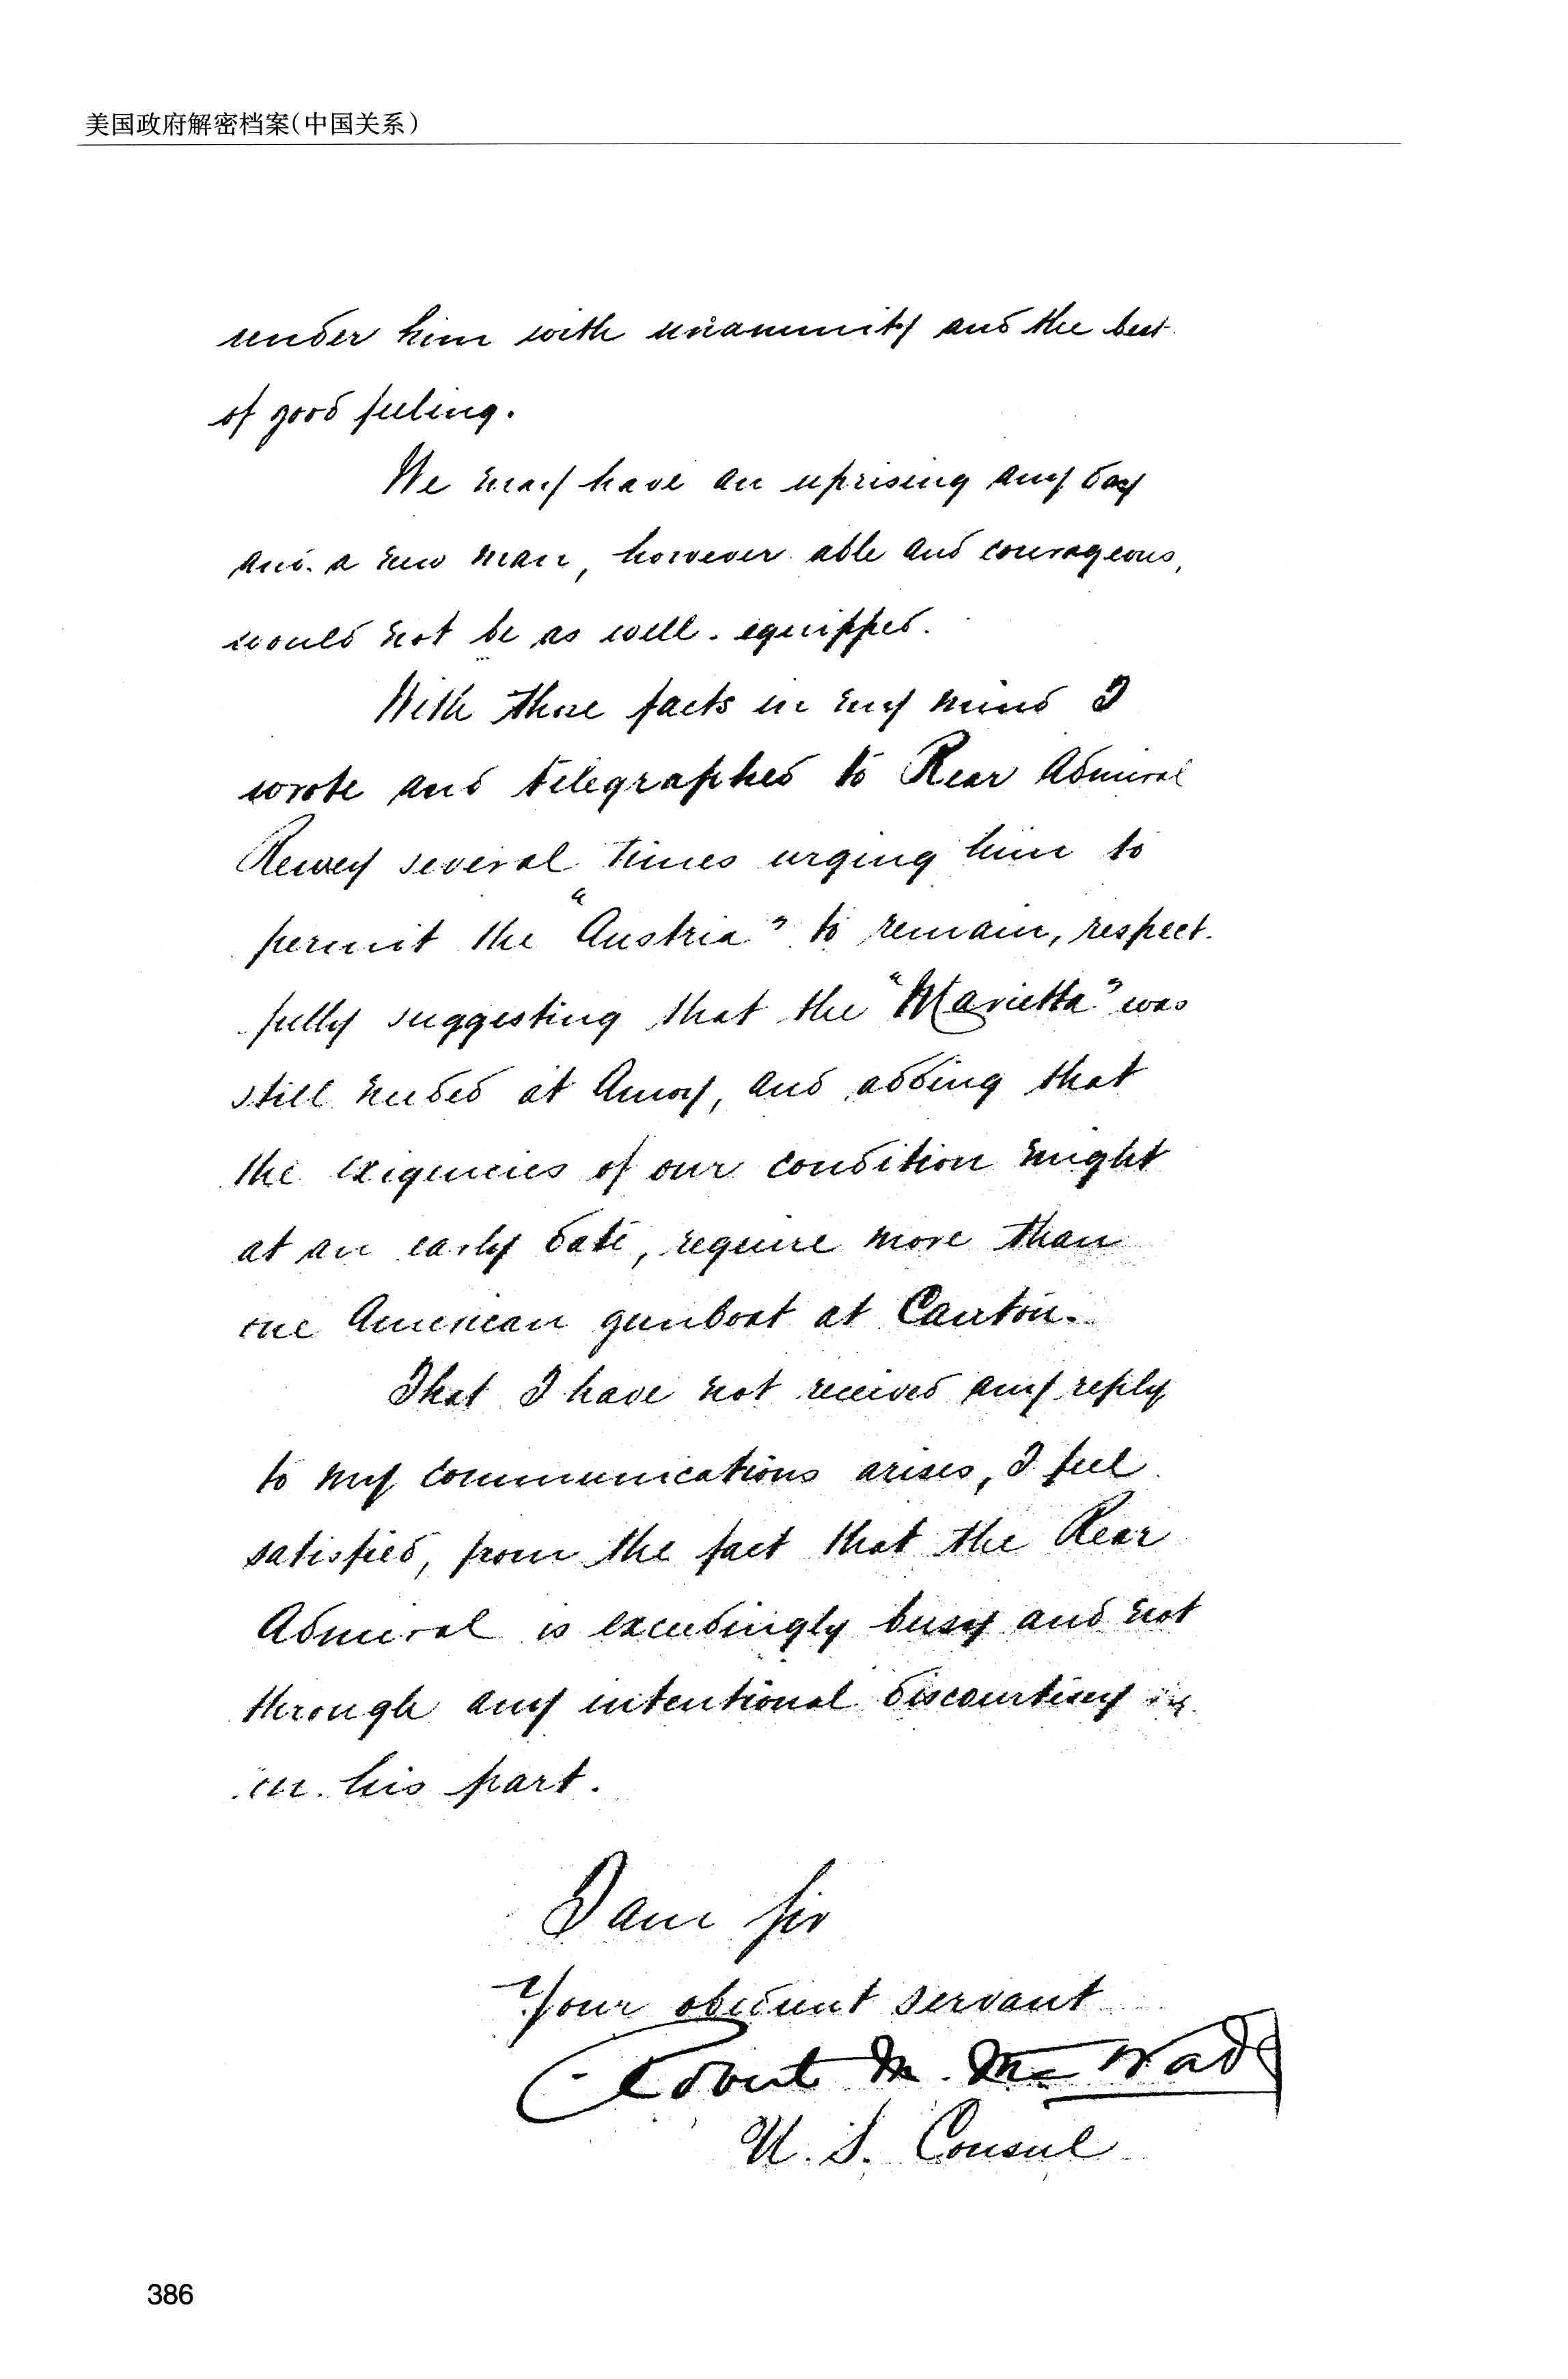 美国政府解密档案(中国关系)
under him with unanimity and the best
of good feeling.
We may have an uprising any day
and a new man, however able and courageous,
would not be as well equipped.
With those facts in my mind I
wrote and telegraphed to Rear Admiral
Remey several times urging him to
permit the "Austria" to remain, respect-
fully suggesting that the "Marietta" was
still needed at Amoy, and adding that
the exigencies of our condition might
at an early date, require more than
one American gunboat at Canton.
That I have not received any reply
to my communications arises, I feel
satisfied, from the fact that the Rear
Admiral is exceedingly busy and not
through any intentional discourtesy
on his part.
I am Sir
Your obedient servant
Robert M. McWade
U. S. Consul
386